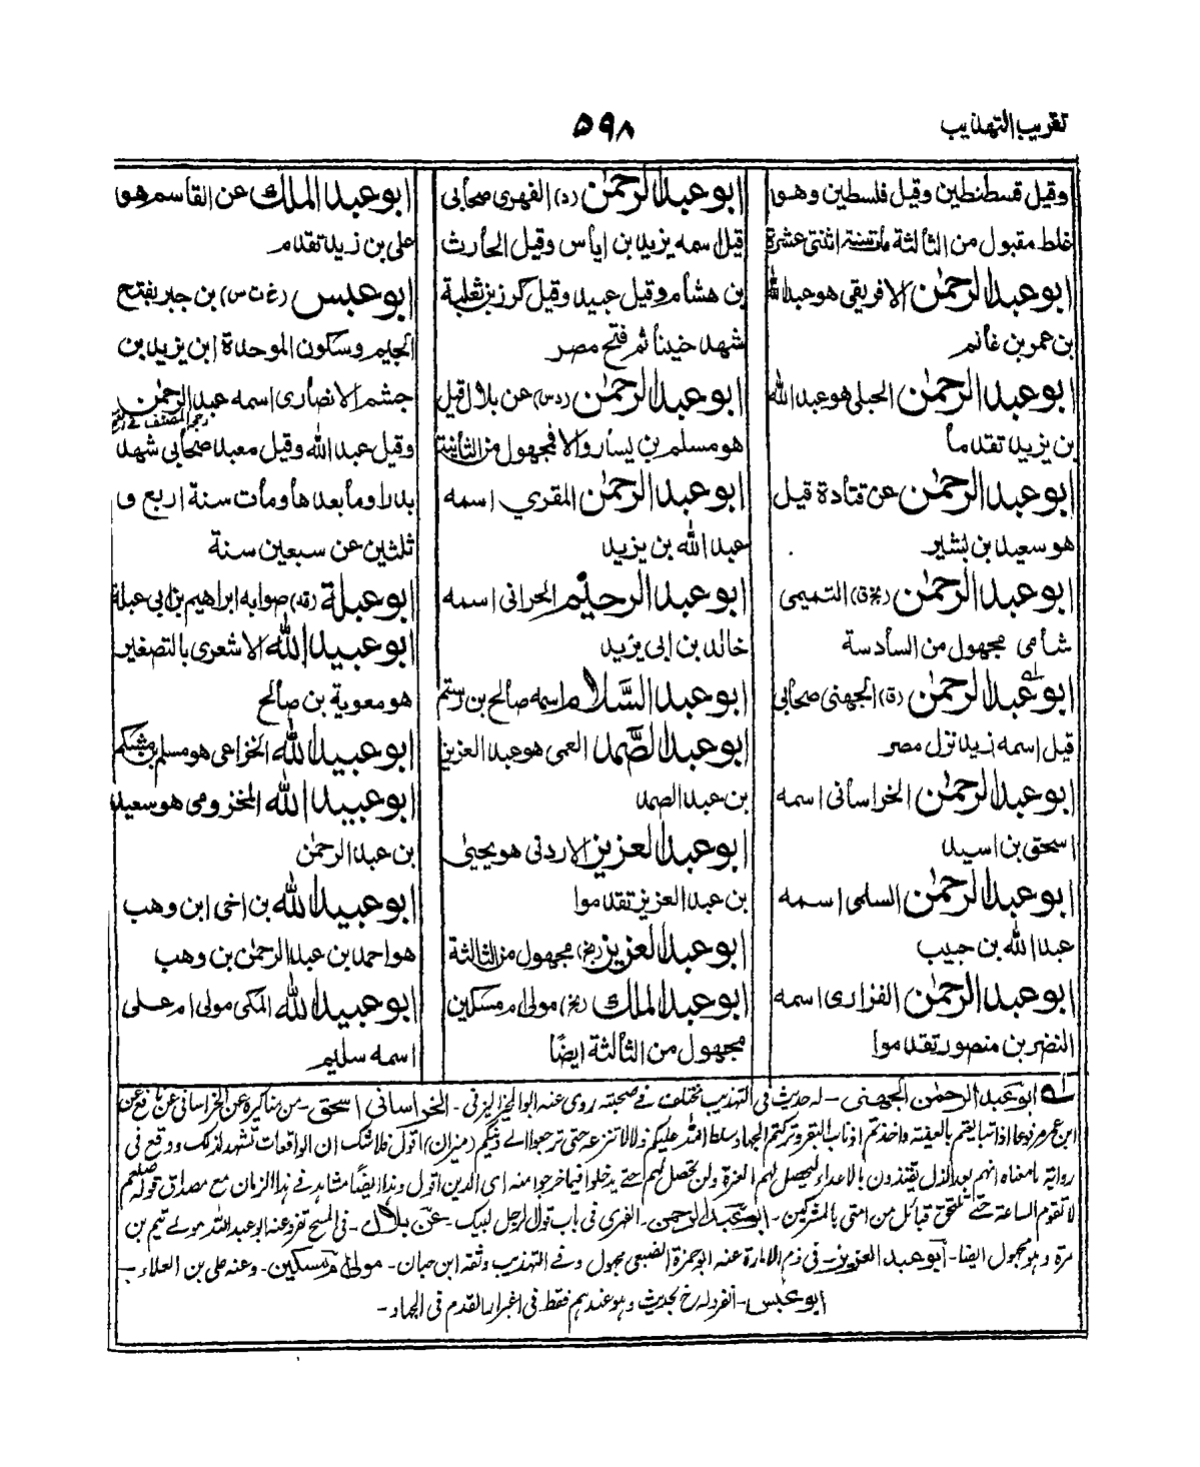 تقريب التهذيب
۵۹۸
وقيل قسطنطين وقيل فلسطين وهو
غلط مقبول من الثالثة مات سنة اثنتى عشرة
ابوعبدالرحمن الافريقى هو عبدالله
بن عمر بن غانم
ابوعبدالرحمن الحبلى هو عبدالله
بن يزيد تقدما
ابوعبدالرحمن عن قتادة قيل
هو سعيد بن بشير
ابوعبدالرحمن التميمى
شامى مجهول من السادسة
ابوعبدالرحمن (ق) الجهنى صحابى
قيل اسمه زيد نزل مصر
ابوعبدالرحمن الخراسانى اسمه
اسحق بن اسيد
ابوعبدالرحمن السلمى اسمه
عبدالله بن حبيب
ابوعبدالرحمن الفزارى اسمه
النضر بن منصور تقدموا
ابوعبدالرحمن (د) الفهرى صحابى
قيل اسمه يزيد بن اياس وقيل الحارث
بن هشام وقيل عبيد وقيل كرز بن ثعلبة
شهد حنينا ثم فتح مصر
ابوعبدالرحمن (دس) عن بلال قيل
هو مسلم بن يسار والا فمجهول من الثانية
ابوعبدالرحمن المقرى اسمه
عبدالله بن يزيد
ابوعبدالرحيم الحرانى اسمه
خالد بن ابى يزيد
ابوعبدالسلام اسمه صالح بن رستم
ابوعبدالصمد العمى هو عبدالعزيز
بن عبدالصمد
ابوعبدالعزيز الاردنى هو يحيى
بن عبدالعزيز تقدموا
ابوعبدالعزيز (بخ) مجهول من الثالثة
ابوعبدالملك (بخ) مولى ام مسكين
مجهول من الثالثة ايضًا
ابوعبدالملك عن القاسم هو
على بن زيد تقدم
ابوعبس (خ ت س) بن جبر بفتح
الجيم وسكون الموحدة ابن يزيد بن
جشم الانصارى اسمه عبدالرحمن
وقيل عبدالله وقيل معبد صحابى شهد
بدرا وما بعدها ومات سنة اربع و
ثلثين عن سبعين سنة
ابوعبلة (قد) صوابه ابراهيم بن ابى عبلة
ابوعبيدالله الاشعرى بالتصغير
هو معوية بن صالح
ابوعبيدالله الخزاعى هو مسلم بن مشكم
ابوعبيدالله المخزومى هو سعيد
بن عبدالرحمن
ابوعبيدالله بن اخى ابن وهب
هو احمد بن عبدالرحمن بن وهب
ابوعبيدالله المكى مولى ام على
اسمه سليم
ابوعبدالرحمن الجهنى - له حديث فى التهذيب مختلف فى صحبته روى عنه ابو الخير اليزنى - الخراسانى اسحق - من مناكيره عن الخراسانى عن نافع عن
ابن عمر مرفوعا اذا تبايعتم بالعينة واخذتم اذناب البقر وتركتم الجهاد سلط الله عليكم ذلا لا تنزعه حتى ترجعوا الى دينكم (ميزان) اقول فلا شك ان الواقعات تشهد لذلك ووقع فى
لا تقوم الساعة حتى تلحق قبائل من امتى بالمشركين - ابوعبدالرحمن - الفهرى فى باب قول الرجل لبيك - عن بلال - فى المسح تفرد عنه ابوعبدالله مولى تيم بن
مرة وهو مجهول ايضا - ابوعبدالعزيز - فى ذم الامارة عنه ابو حمزة الضبعى مجهول وفى التهذيب وثقه ابن حبان - مولى ام مسكين - وعنه على بن العلاء -
ابوعبس - انفرد له خ بحديث وهو عندهم فقط فى اغبرار القدم فى الجهاد -